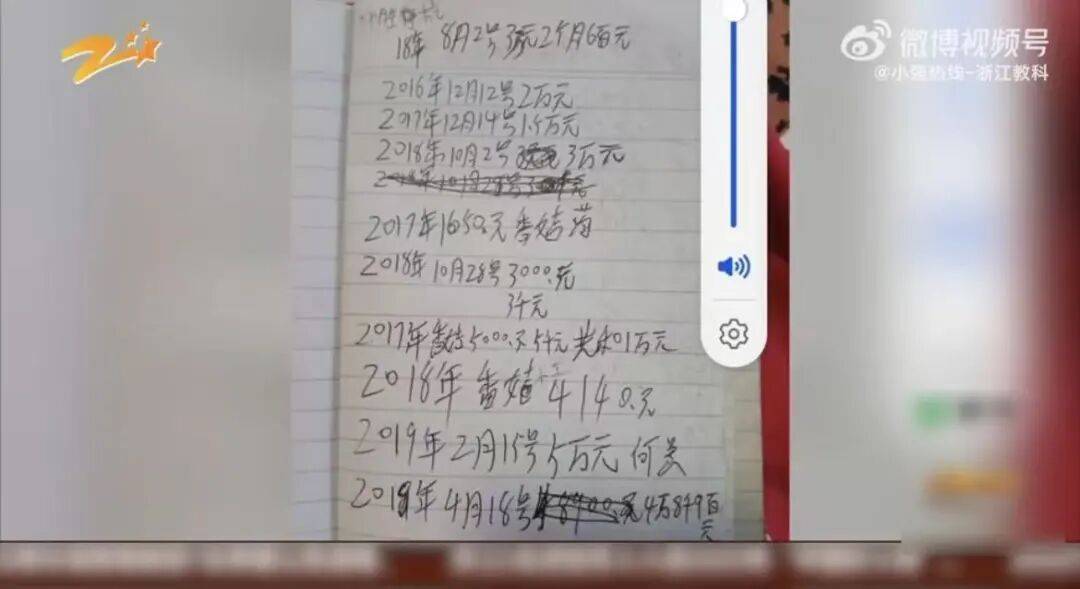 微博视频号
@小强热线-浙江教科
18年 8月2号3元2个月6百元
2016年12月12号2万元
2017年12月14号1.5万元
2018年10月2号 3万元
2017年1650.元 番姞苗
2018年10月28号3000.元
3千元
2017年番姞5000.元5千元 1万元
2018年 番姞 4140.元
2019年2月15号5万元 何美
2019年4月18号 4万8千9百
元